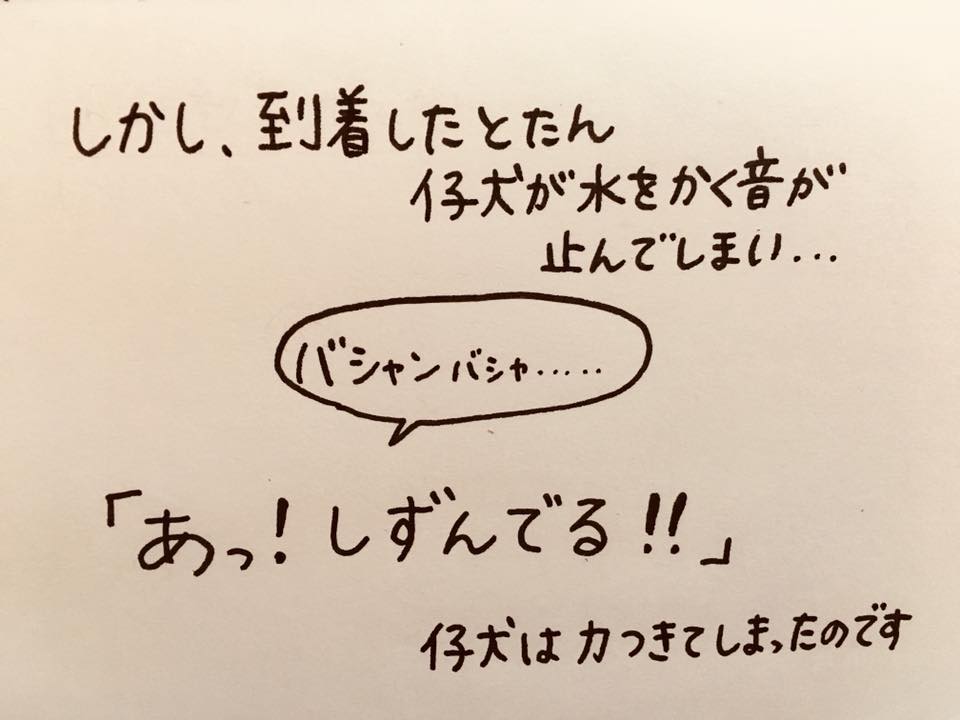 しかし、到着したとたん
仔犬が水をかく音が
止んでしまい...
バシャンバシャ.....
「あっ！しずんでる!!」
仔犬は力つきてしまったのです